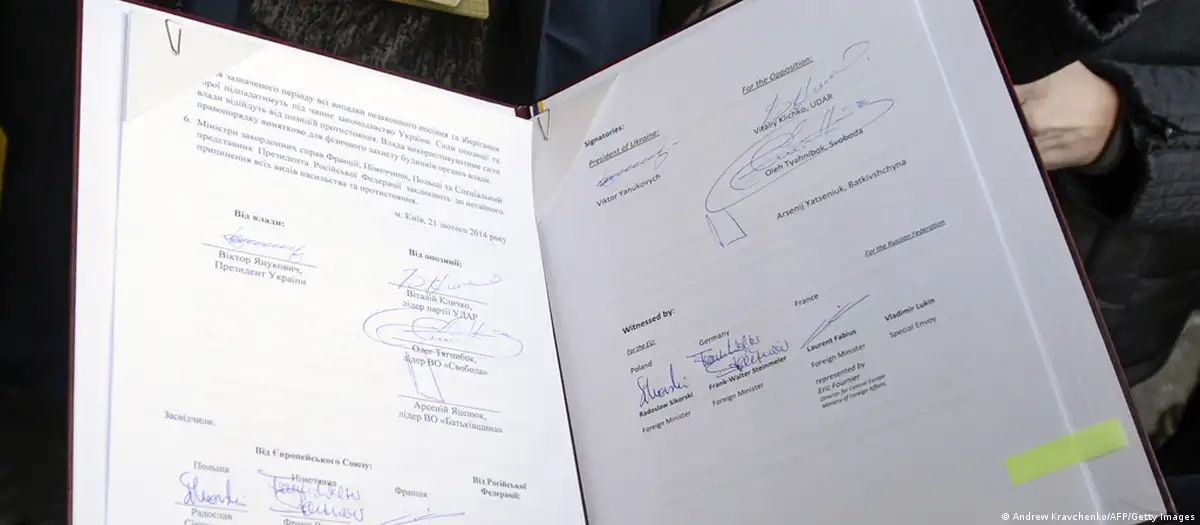 зазначеного періоду всі випадки незаконного носіння та зберігання
зброї підпадатимуть під чинне законодавство України. Сили опозиції та
влади відійдуть від позицій протистояння. Влада використовуватиме сили
правопорядку винятково для фізичного захисту будинків органів влади.
6. Міністри закордонних справ Франції, Німеччини, Польщі та Спеціальний
представник Президента Російської Федерації закликають до негайного
припинення всіх видів насильства та протистояння.
м. Київ, 21 лютого 2014 року
Від влади:
Віктор Янукович,
Президент України
Від опозиції:
Віталій Кличко,
лідер партії УДАР
Олег Тягнибок,
лідер ВО «Свобода»
Арсеній Яценюк,
лідер ВО «Батьківщина»
Засвідчили:
Від Європейського Союзу:
Від Російської
Федерації:
Польща
Німеччина
Франція
Радослав
Signatories:
President of Ukraine:
Viktor Yanukovych
For the Opposition:
Vitaliy Klichko, UDAR
Oleh Tyahnibok, Svoboda
Arsenij Yatseniuk, Batkivshchyna
Witnessed by:
For the EU:
For the Russian Federation
Poland
Germany
France
Radoslaw Sikorski
Foreign Minister
Frank-Walter Steinmeier
Foreign Minister
Laurent Fabius
Foreign Minister
represented by
Eric Fournier
Director for Central Europe
Ministry of Foreign Affairs
Vladimir Lukin
Special Envoy
© Andrew Kravchenko/AFP/Getty Images